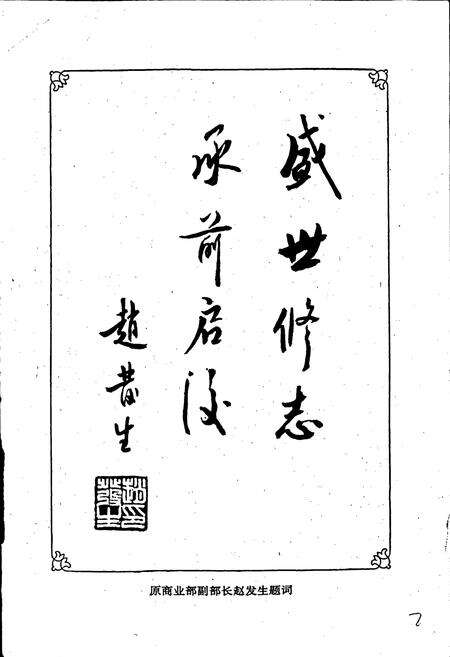 盛世修志
承前启后
赵发生
原商业部副部长赵发生题词
7